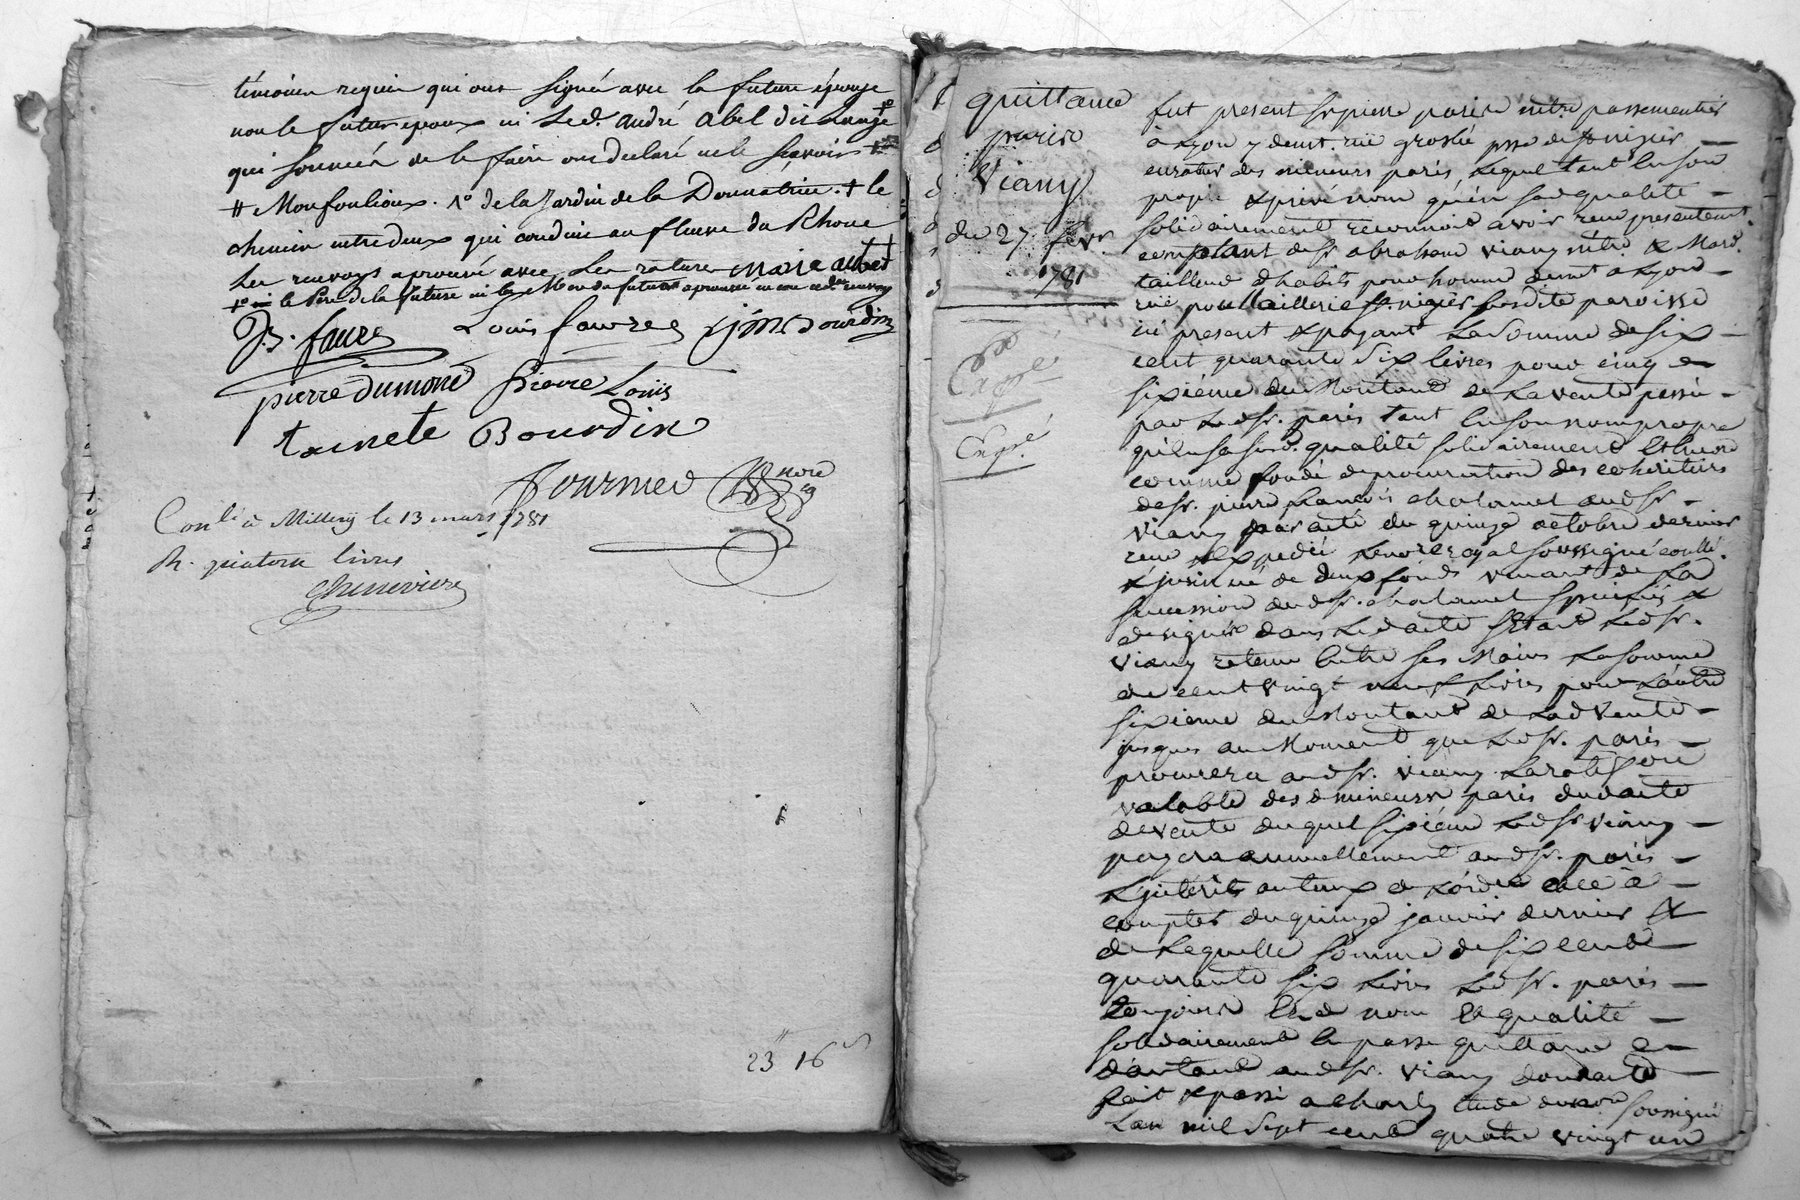 témoins requis qui ont signé avec la future épouse
non le futur epoux ni led. andré abel dit Lange
qui sommés de le faire ont declaré ne le scavoir
# Monfoulioux. 1º de la Jardin de la Donnatrice. + le
chemin entre deux qui conduit au fleuve du Rhone
Les renvoys aprouvé avec les ratures marie aubert
le Pere de la future ni la Mere du futur aprouvé
J.B. faure Louis faure Bourdin
pierre dumond Pierre Louis
tainete Bourdin
fournier nore
Conlé à Millery le 13 mars 1781
R. quatorze livres
Chenevière
23 16
quittance
paris
Viany
du 27 fevr.
1781
Expé
fut present sr pierre paris mtre. passementier
à Lyon y demt. ruë groslée psse de st nizier
curateur des mineurs paris Lequel tant en son
propre & privé nom qu'en sad qualité
solidairement reconnoit avoir reçu presentement
comptant de sr. abraham viany mtre. & Mard.
tailleur d'habits pour homme demt a Lyon
ruë poullaillerie st. nizier susdite paroisse
ici present & payant La Somme de six
cent quarante Six livres pour cinq
sixiéme du Montant de La vente passée
par Led sr. paris tant en son nom propre
qu'en sa susd. qualité solidairement Et encore
comme fondé de procuration des coheritiers
de sr. pierre françois chalamel aud sr.
Viany par acte du quinze octobre dernier
reçu & expedié Le nore royal soussigné
de deux fonds venant de La
succession dud sr. chalamel specifiés &
designés dans Led acte Etant Led sr.
Viany retenu Entre ses Mains La somme
de cent vingt neuf Livres pour L'autre
sixieme du Montant de Lad Vente
jusques au Moment que Led sr. paris
procurera aud sr. viany La ratiffion
valable des d mineurs paris dud acte
de vente duquel sixiéme Led sr viany
payera annuellement aud sr. paris
L'jnterêt au taux de L'ordce a
compter du quinze janvier dernier &
de Laquelle somme de six cent
quarante six Livres Led sr. paris
toujours Esd nom Et qualité
solidairement En passe quittance
d'autant aud sr. viany dont acte
fait & passé a charly Etude dud nore soussigné
L'an mil Sept cent quatre vingt un